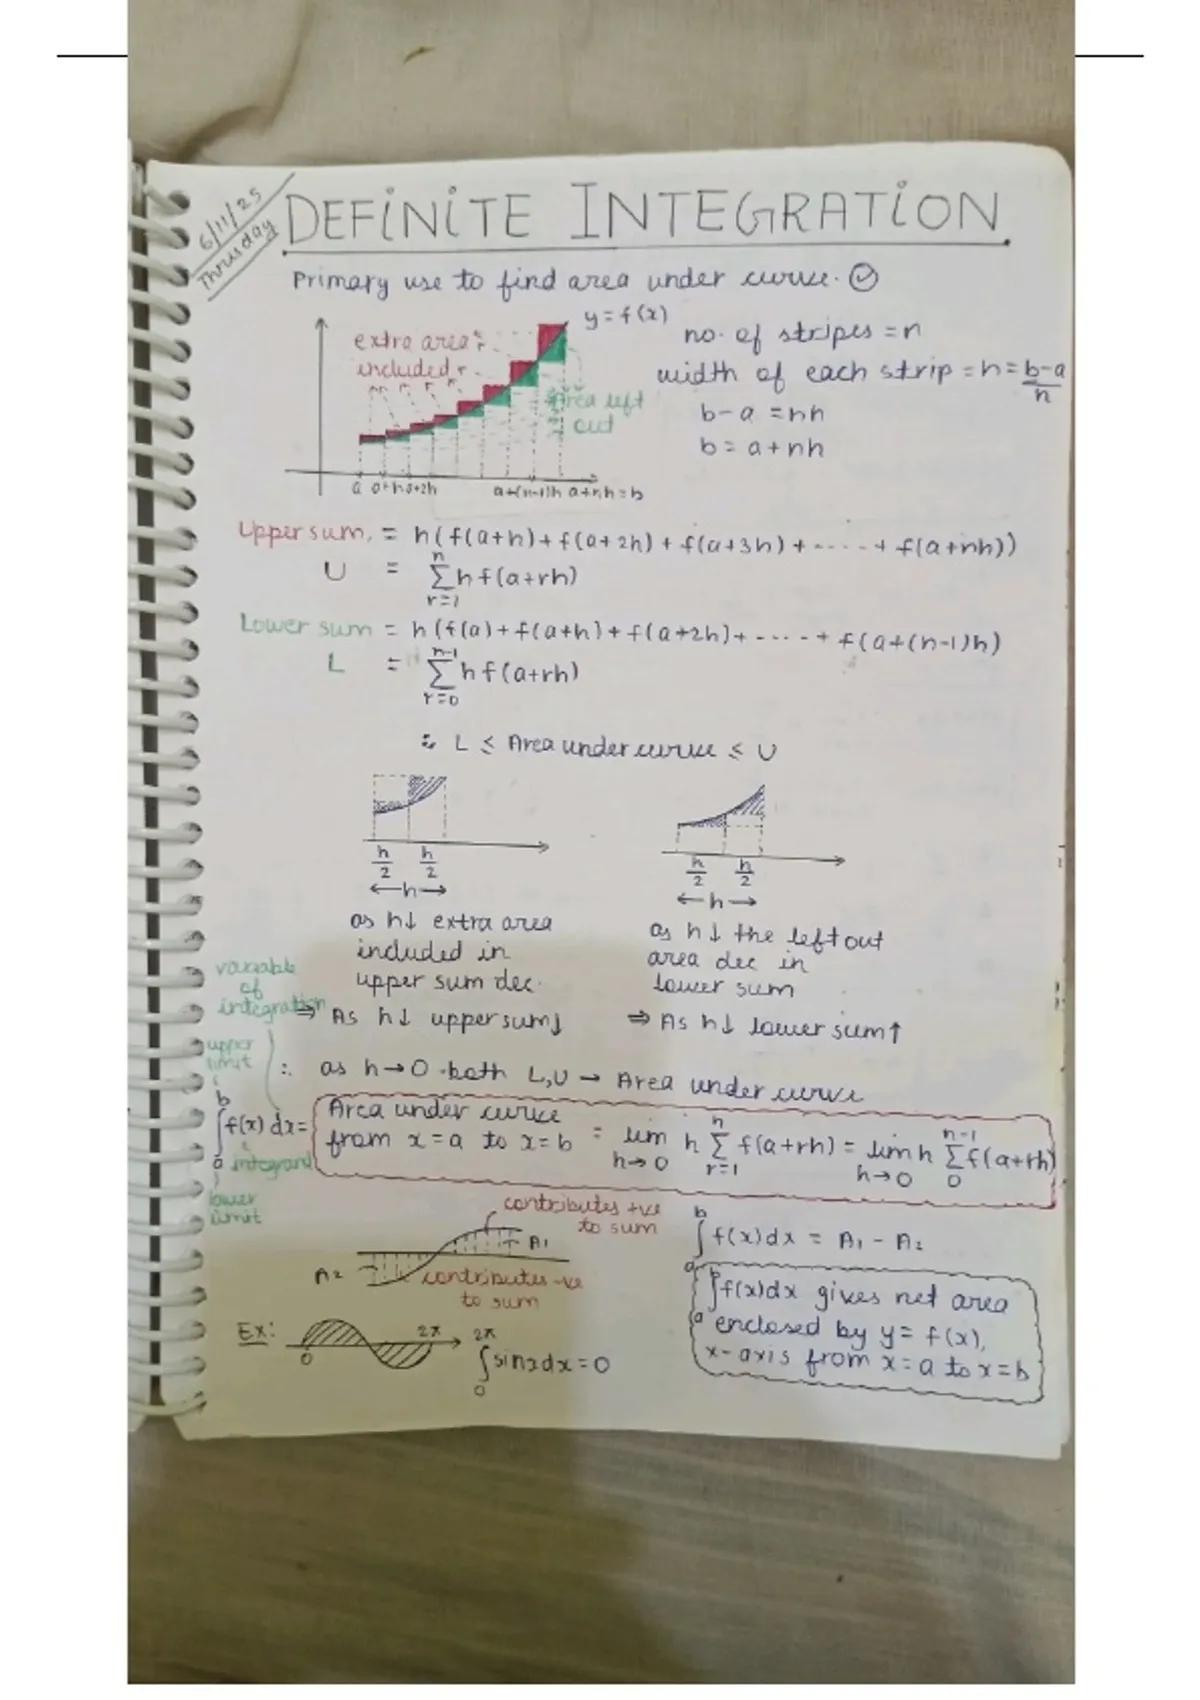 6/11/25
Thrusday
DEFINITE INTEGRATION
Primary use to find area under curve.
y = f(x)
extra area
included
Area left
out
no. of stripes = n
width of each strip = h = b-a/n
b-a = nh
b = a+nh
a a+h a+2h a+(n-1)h a+nh=b
Upper sum, = h(f(a+h)+f(a+2h)+f(a+3h)+-----+f(a+nh))
U = n∑r=1 hf(a+rh)
Lower sum = h(f(a)+f(a+h)+f(a+2h)+-----+f(a+(n-1)h)
L = n-1∑r=0 hf(a+rh)
∴ L ≤ Area under curve ≤ U
h/2 h/2
h
as h↓ extra area
included in
upper sum dec.
⇒ As h↓ upper sum↓
h/2 h/2
h
as h↓ the left out
area dec in
lower sum
⇒ As h↓ lower sum↑
variable
of
integration
upper
limit
∴ as h→0 both L,U → Area under curve
b∫a f(x) dx =
integrand
lower
limit
Area under curve
from x=a to x=b = lim h→0 h n∑r=1 f(a+rh) = lim h→0 h n-1∑0 f(a+rh)
contributes +ve
to sum
A1
A2
contributes -ve
to sum
b∫a f(x)dx = A1 - A2
b∫a f(x)dx gives net area
enclosed by y = f(x),
x-axis from x=a to x=b
Ex:
0 2π
2π∫0 sinxdx = 0